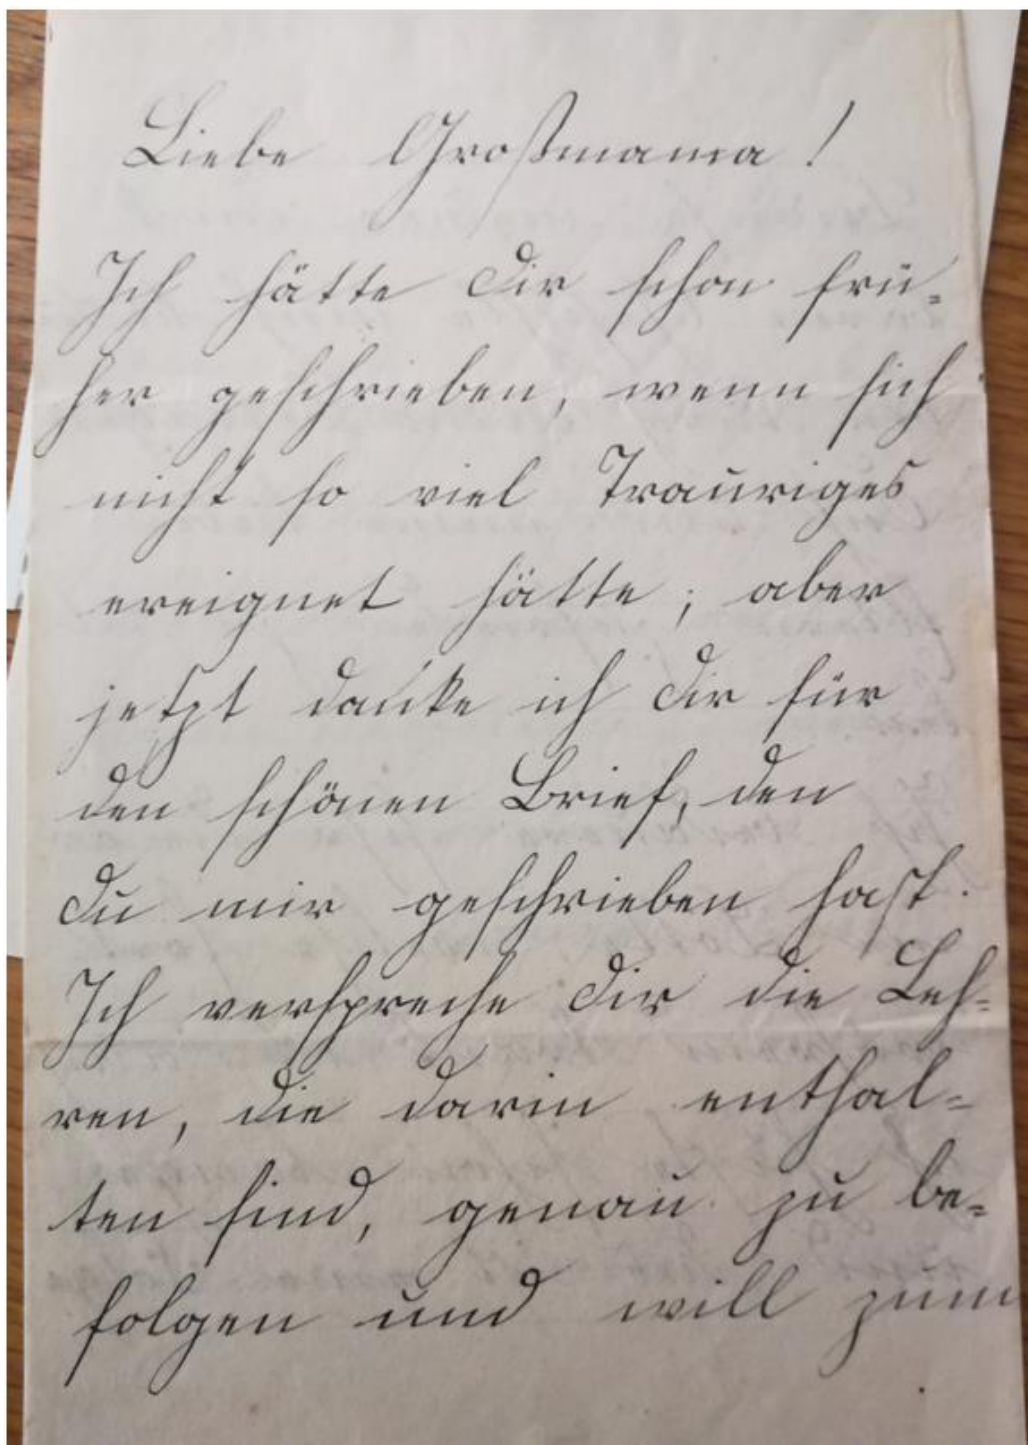 Liebe Großmama!
Ich hätte Dir schon frü-
her geschrieben, wenn sich
nicht so viel Trauriges
ereignet hätte; aber
jetzt danke ich Dir für
den schönen Brief, den
Du mir geschrieben hast.
Ich verspreche Dir die Leh-
ren, die darin enthal-
ten sind, genau zu be-
folgen und will zum